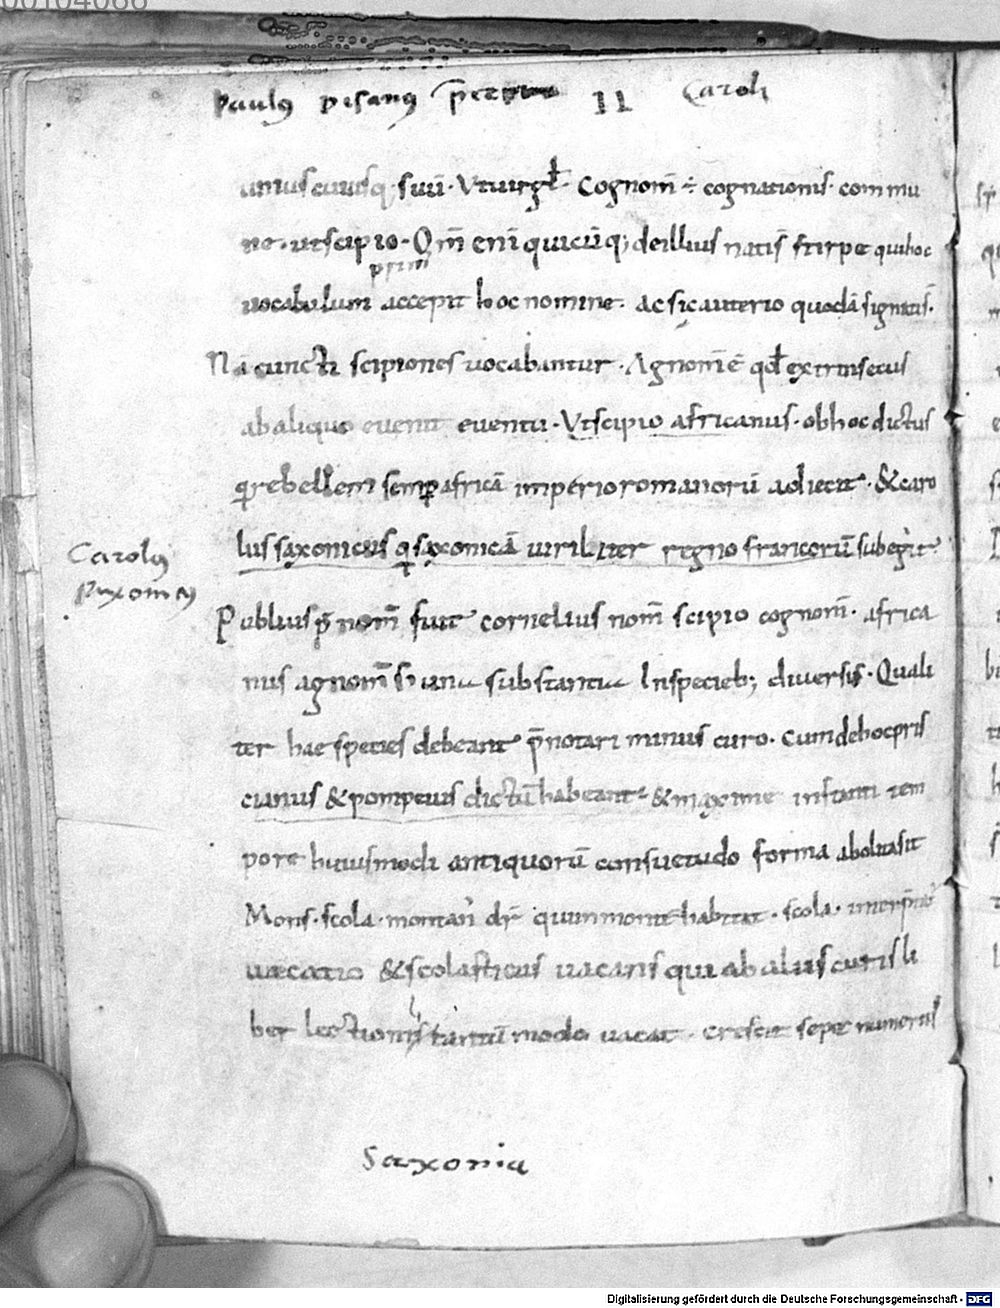 00104066
Paulꝯ pisanꝯ II Caroli
uniuscuiusq; suū. Vt uirgł. Cognom̄ ÷ cognationis. commu
ne. ut scipio. Om̄ enī quicūq; de illius natis stirpe qui hoc
primū
uocabulum accepit hoc nomine. ac si cauterio quodā signatis.
Nā cuncti scipiones uocabantur. Agnom̄ ē qđ extrinsecus
ab aliquo euenit euentu. Vt scipio africanus. ob hoc dictus
q̄ rebellem semp africā imperio romanorū adiecit. & caro
lus saxonicus q̄ saxonicā uiriliter regno francorū subegit.
Carolꝯ
saxonicꝯ
Publius p̄nom̄ fuit cornelius nom̄ scipio cognom̄. africa
nus agnom̄ substantia In specieb; diuersis. Quali
ter hae species debeant p̄notari minus curo. Cum de hoc pris
cianus & pompeius dictū habeant & maxime instanti tem
pore huiusmodi antiquorū consuetudo forma abolita sit
Mons. scola. montan' dr̄ qui in monte habitat. scola. interp̄t'
uacatio & scolasticus uacans qui ab aliis curis li
ber lectionis tantū modo uacat. crescit sepe numerus
Saxonia
Digitalisierung gefördert durch die Deutsche Forschungsgemeinschaft - DFG